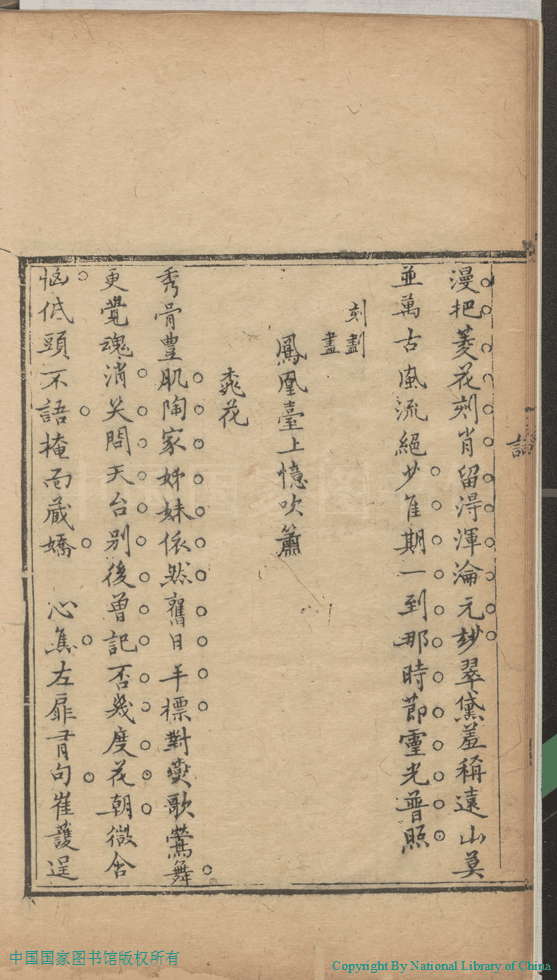 漫把菱花刻肖留得渾淪元妙翠黛羞稱遠山莫
並萬古風流絕少隹期一到那時節靈光普照
刻劃
盡
鳳凰臺上憶吹簫
桃花
秀骨豐肌陶家姊妹依然舊日丰標對燕歌鶯舞
更覺魂消笑問天台别後曾記否幾度花朝微含
惱低頭不語掩面藏嬌 心焦左扉有句崔護逞
中国国家图书馆版权所有
Copyright By National Library of China